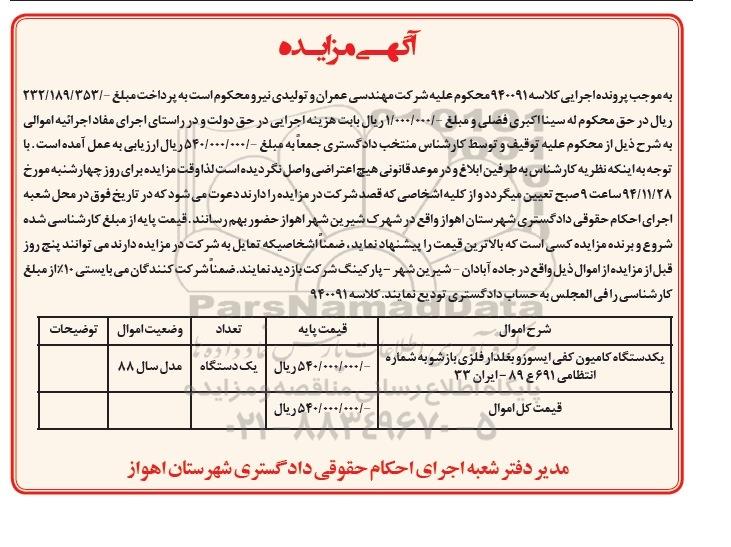 آگهی مزایده
به موجب پرونده اجرایی کلاسه ۹۴۰۰۹۱ محکوم علیه شرکت مهندسی عمران و تولیدی نیرو محکوم است به پرداخت مبلغ -/۲۳۲/۱۸۹/۳۵۳
ریال در حق محکوم له سینا اکبری فضلی و مبلغ -/۱/۰۰۰/۰۰۰ ریال بابت هزینه اجرایی در حق دولت و در راستای اجرای مفاد اجرائیه اموالی
به شرح ذیل از محکوم علیه توقیف و توسط کارشناس منتخب دادگستری جمعاً به مبلغ -/۵۴۰/۰۰۰/۰۰۰ ریال ارزیابی به عمل آمده است. با
توجه به اینکه نظریه کارشناس به طرفین ابلاغ و در موعد قانونی هیچ اعتراضی واصل نگردیده است لذا وقت مزایده برای روز چهارشنبه مورخ
۹۴/۱۱/۲۸ ساعت ۹ صبح تعیین میگردد و از کلیه اشخاصی که قصد شرکت در مزایده را دارند دعوت می شود که در تاریخ فوق در محل شعبه
اجرای احکام حقوقی دادگستری شهرستان اهواز واقع در شهرک شیرین شهر اهواز حضور بهم رسانند. قیمت پایه از مبلغ کارشناسی شده
شروع و برنده مزایده کسی است که بالاترین قیمت را پیشنهاد نماید، ضمناً اشخاصیکه تمایل به شرکت در مزایده دارند می توانند پنج روز
قبل از مزایده از اموال ذیل واقع در جاده آبادان - شیرین شهر - پارکینگ شرکت بازدید نمایند. ضمناً شرکت کنندگان می بایستی ۱۰٪ از مبلغ
کارشناسی را فی المجلس به حساب دادگستری تودیع نمایند. کلاسه ۹۴۰۰۹۱
ParsNamadData
شرح اموال قیمت پایه تعداد وضعیت اموال توضیحات
یکدستگاه کامیون کفی ایسوزو بغلدار فلزی بازشو به شماره انتظامی ۶۹۱ ع ۸۹ - ایران ۳۳ -/۵۴۰/۰۰۰/۰۰۰ ریال یک دستگاه مدل سال ۸۸
پایگاه اطلاع رسانی مناقصه و مزایده
قیمت کل اموال -/۵۴۰/۰۰۰/۰۰۰ ریال
۰۲۱-۸۸۳۴۹۶۷۰-۵
مدیر دفتر شعبه اجرای احکام حقوقی دادگستری شهرستان اهواز